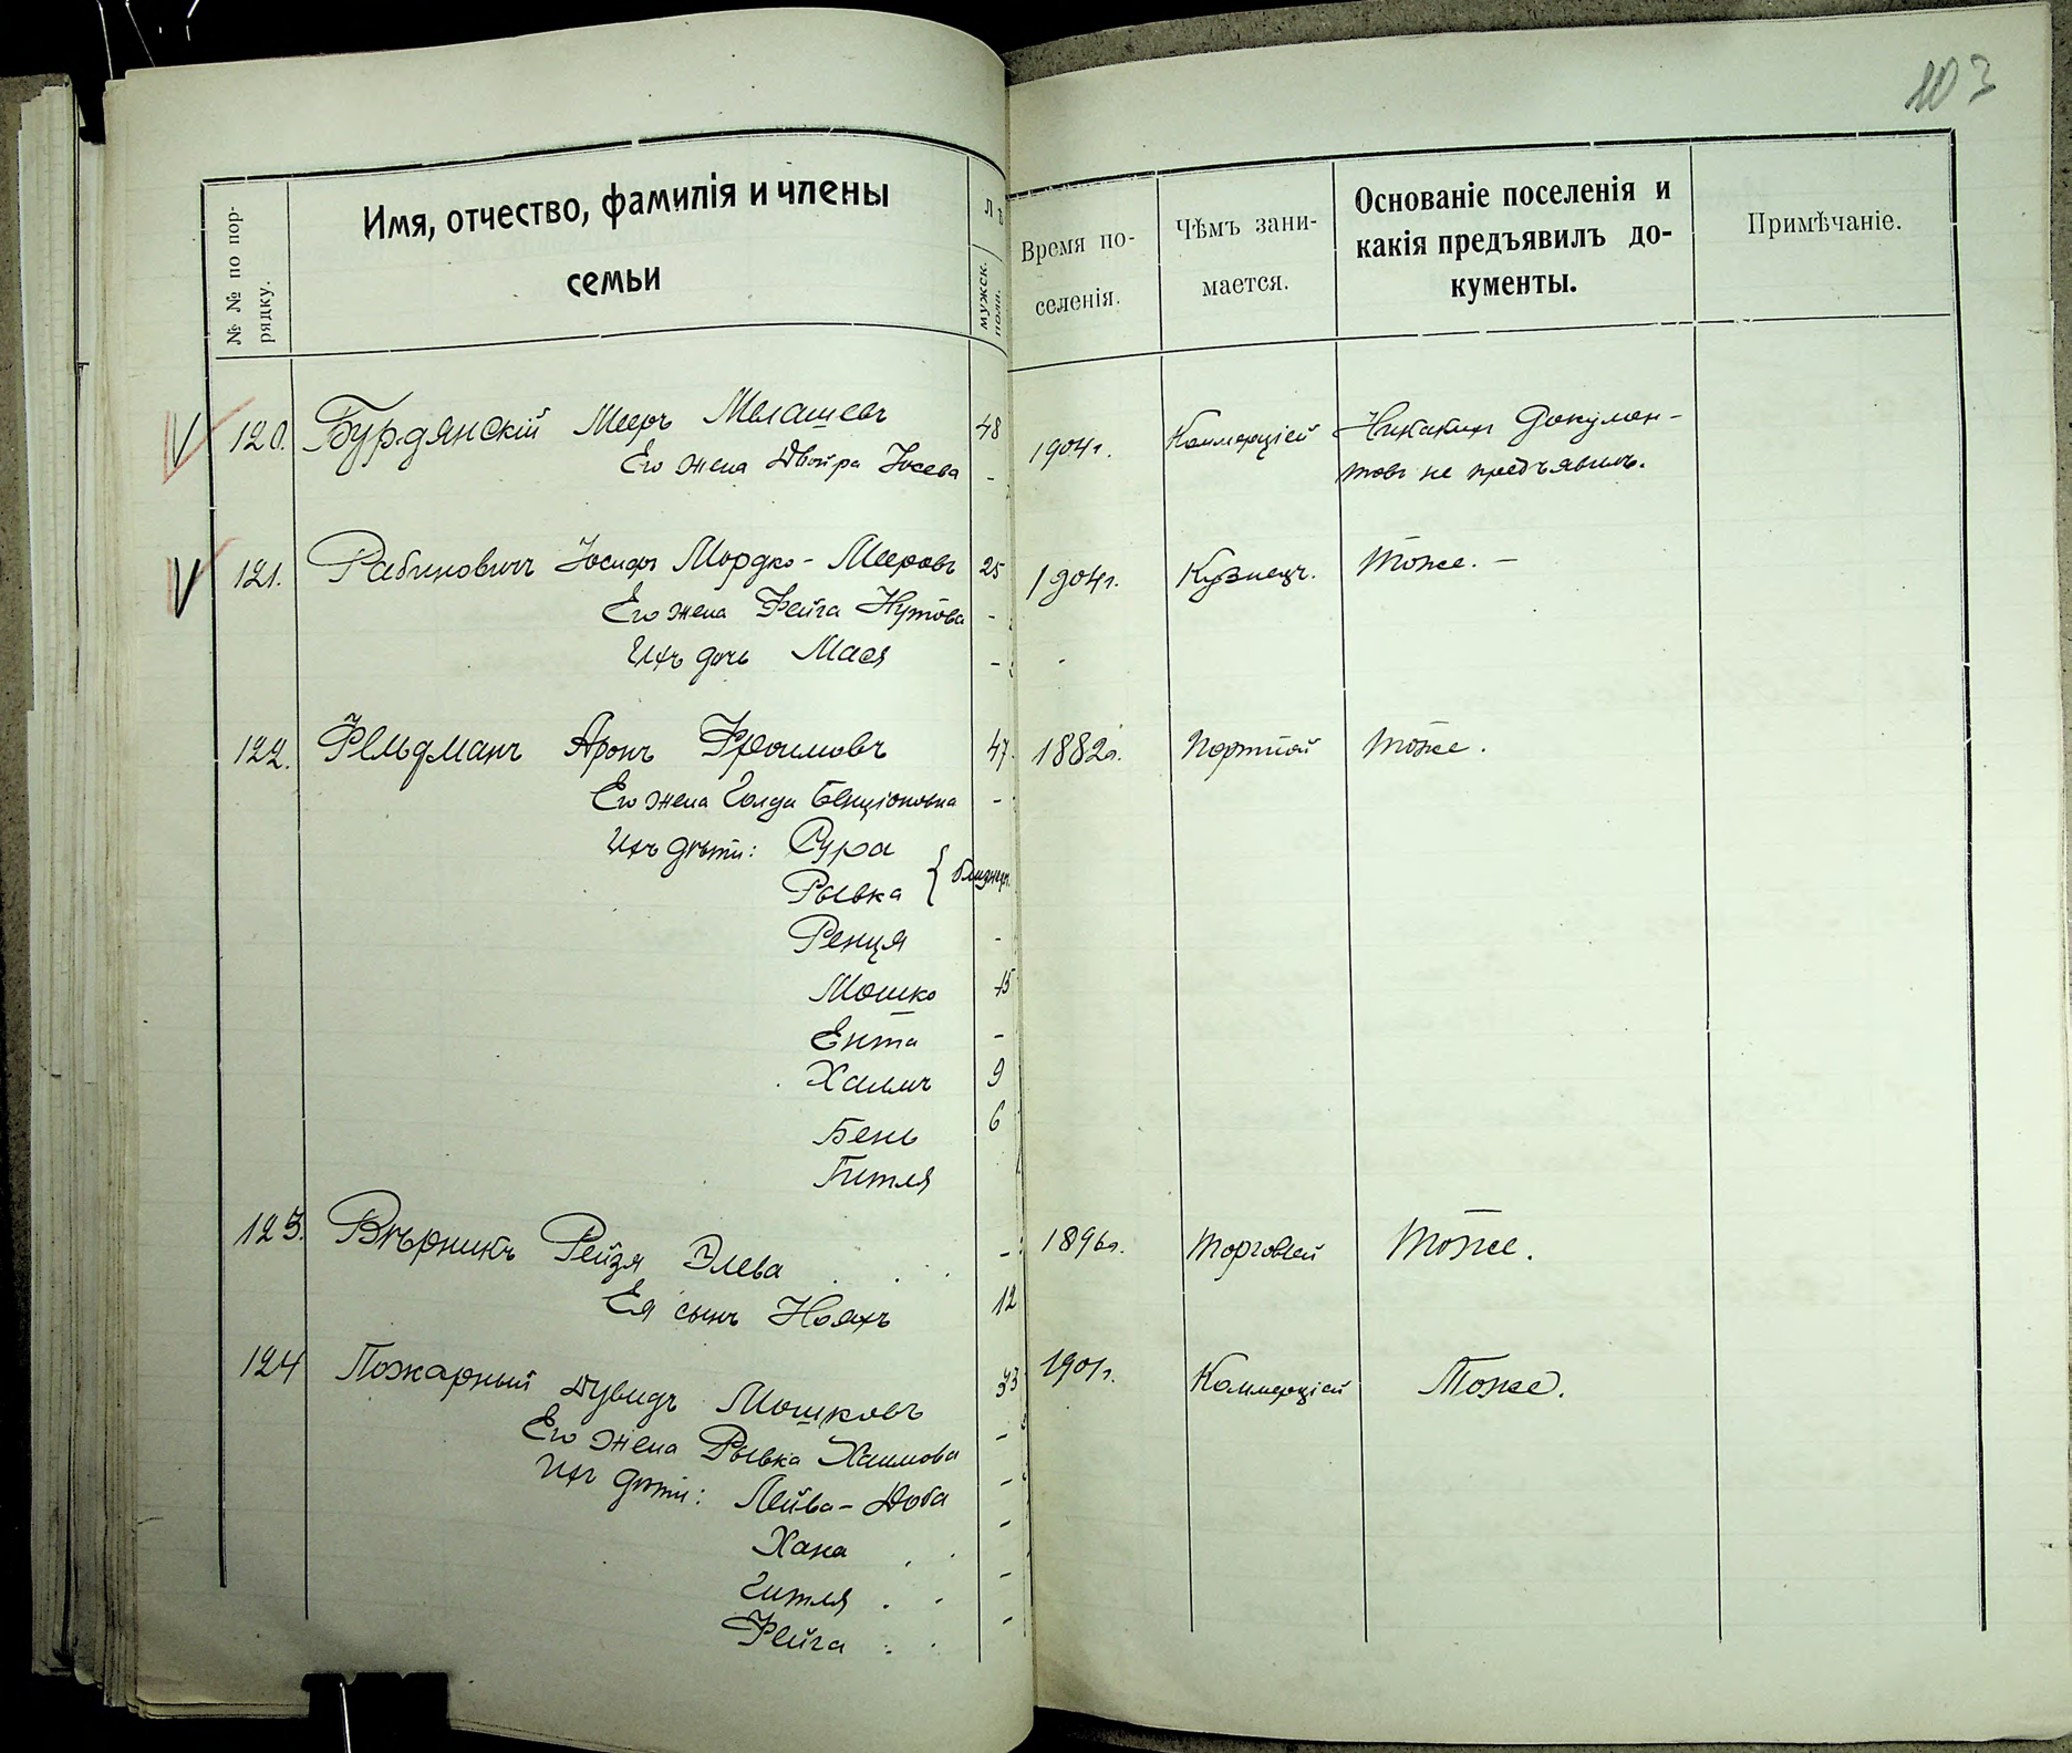 103
№ № по пор-
рядку.
Имя, отчество, фамилія и члены
семьи
Лѣ
мужск.
пола.
Время по-
селенія.
Чѣмъ зани-
мается.
Основаніе поселенія и
какія предъявилъ до-
кументы.
Примѣчаніе.
120. Бурдянскій Мееръ 48 1904г. Коммерціей Никакихъ докумен-
Его жена Двойра Іосева - товъ не предъявилъ.
121. Рабиновичъ Іосифъ Мордко-Мееровъ 25 1904г. Кузнецъ. Тоже. -
Его жена Фейга Нутова -
Ихъ дочь Мася -
122. Фельдманъ Аронъ Фроимовъ 47. 1882г. Портной Тоже.
Его жена Голда Бенціоновна -
Ихъ дѣти: Сура
Рывка { близнецы
Ренця -
Мошко 15
Ента -
Хаимъ 9
Бень 6
Гитля
123. Вѣрникъ Рейзя Элева - 1896г. Торговлей Тоже.
Ея сынъ Нояхъ 12
124 Пожарный Дувидъ Мошковъ 33 1901г. Коммерціей Тоже.
Его жена Рывка Хаимова -
Ихъ дѣти: Лейва-Доба -
Хана -
Гитля -
Фейга -